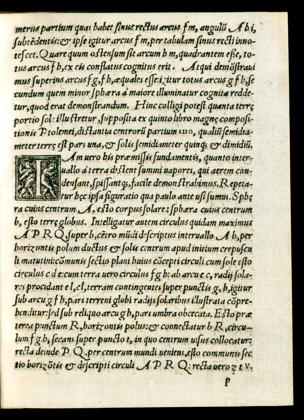 merus partium quas habet sinus rectus arcus f m, anguli A b i,
subtēdentis: & ipse igitur arcus f m, per tabulam sinus recti inno-
tescet. Quare quum ostensum sit arcum b m, quadrantem esse, to-
tus arcus f b, ex eis constatus cognitus erit. At qui demōstraui
mus superius arcus f g, f h, æquales esse: igitur totus arcus g f h, se
cundum quem minor sphæra à maiore illuminatur cognitus redde-
tur, quod erat demonstrandum. Hinc colligi potest quanta terræ
portio sole illustretur, supposita ex quinto libro magnæ composi-
tionis Ptolemei, distantia centrorū partium 1210, qualiū semidia-
meter terræ est pars una, & solis semidiameter quinq; & dimidiū.
IAm uero his præmissis fundamentis, quanto inter-
uallo à terra distent summi uapores, qui aerem con-
densant, spissantq;, facile demonstrabimus. Repeta-
tur hæc ipsa figuratio qua paulo ante usi sumus. Sphæ
ra cuius centrum A, esto corpus solare: sphæra cuius centrum
b, esto terræ globus. Intelligatur autem circulus quidam maximus
A P R Q super b, cētro mūdi descriptus interuallo A b, per
horizontis polum ductus & solis centrum apud initium crepuscu
li matutini: cōmunis sectio plani huius cœpti circuli cum sole esto
circulus c d e: cum terra uero circulus f g h: ab arcu e c, radij sola-
res procidant e l, c l, terram contingentes super punctis g, h, igitur
sub arcu g f h, pars terreni globi radijs solaribus illustrata cōpre-
henditur: sed sub reliquo arcu g h, pars umbra obtecata. Esto præ
terea punctum R, horizontis polus: & connectatur b R, circu-
lum f g h, secans super puncto t, in quo centrum uisus collocatur:
recta deinde P Q, per centrum mundi ueniens, esto communis sec
tio horizōtis & descripti circuli A P R Q: recta uero z t v,
P